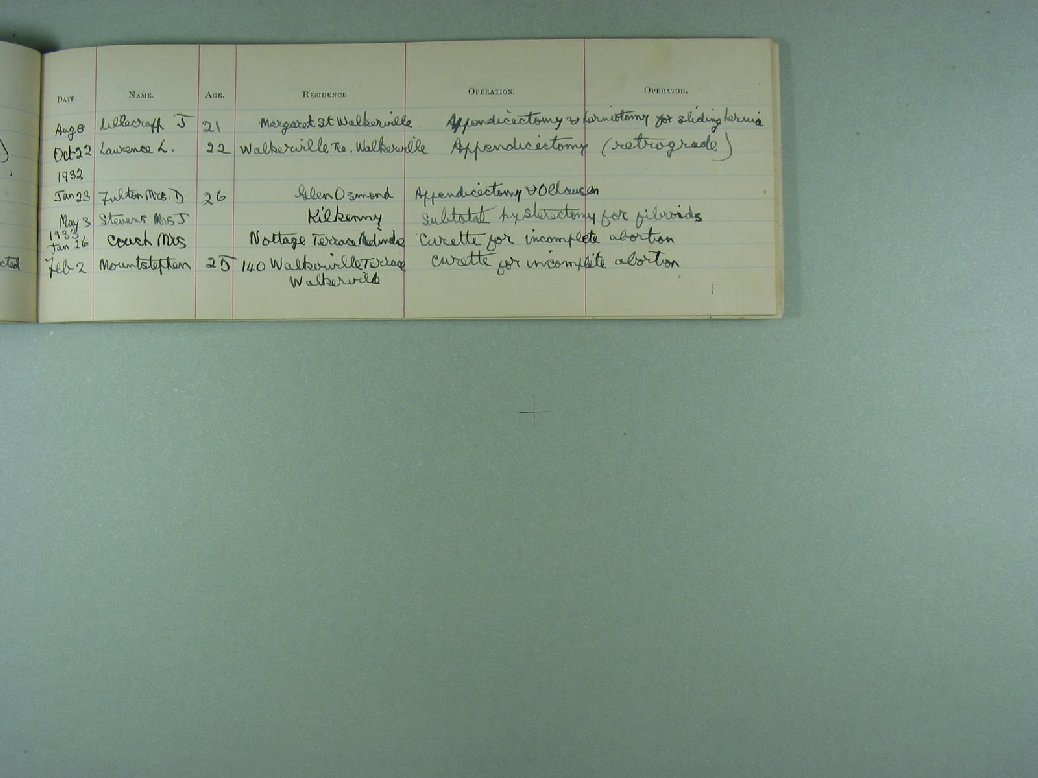 DATE. NAME. AGE. RESIDENCE. OPERATION. OPERATOR.
Aug 8 J 21 Margaret St Walkerville Appendicectomy & herniotomy for sliding hernia
Oct 22 Lawrence L. 22 Walkerville Tce. Walkerville Appendicectomy (retrograde)
1932
Jan 23 Fulton Mrs. D 26 Glen Osmond Appendicectomy & Olhausen
May 3 Stevens Mrs J Kilkenny Subtotal hysterectomy for fibroids
1933
Jan 16 Couch Mrs Nottage Terrace Medindie Curette for incomplete abortion
Feb 2 Mountstephen 25 140 Walkerville Terrace Curette for incomplete abortion
Walkerville
cted